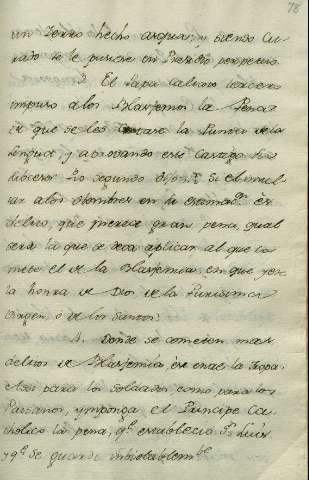 78
un Yerro hecho asqua, y siendo Cu
rado se le pusiese en Presidio perpetuo
El Papa Calixto tercero
impuso a los Blasfemos la Pena
de que se les cortase la Punta de la
Lengua, y aprovando este Castigo
dixo: si el inul
tar a los Hombres en su es
delito, que merece gran pena, qual
será la que se deva aplicar al que co
mete el de la Blasfemia, en que yere
la honra de Dios de la Purissima
Virgen o de los Santos?
Donde se cometen mas
delitos de Blasfemia es en la tropa
Assi para los Soldados como para los
Paisanos, ymponga el Principe Ca
tholico la pena, qe establecio Sn Luis
y qe se guarde inviolablemte